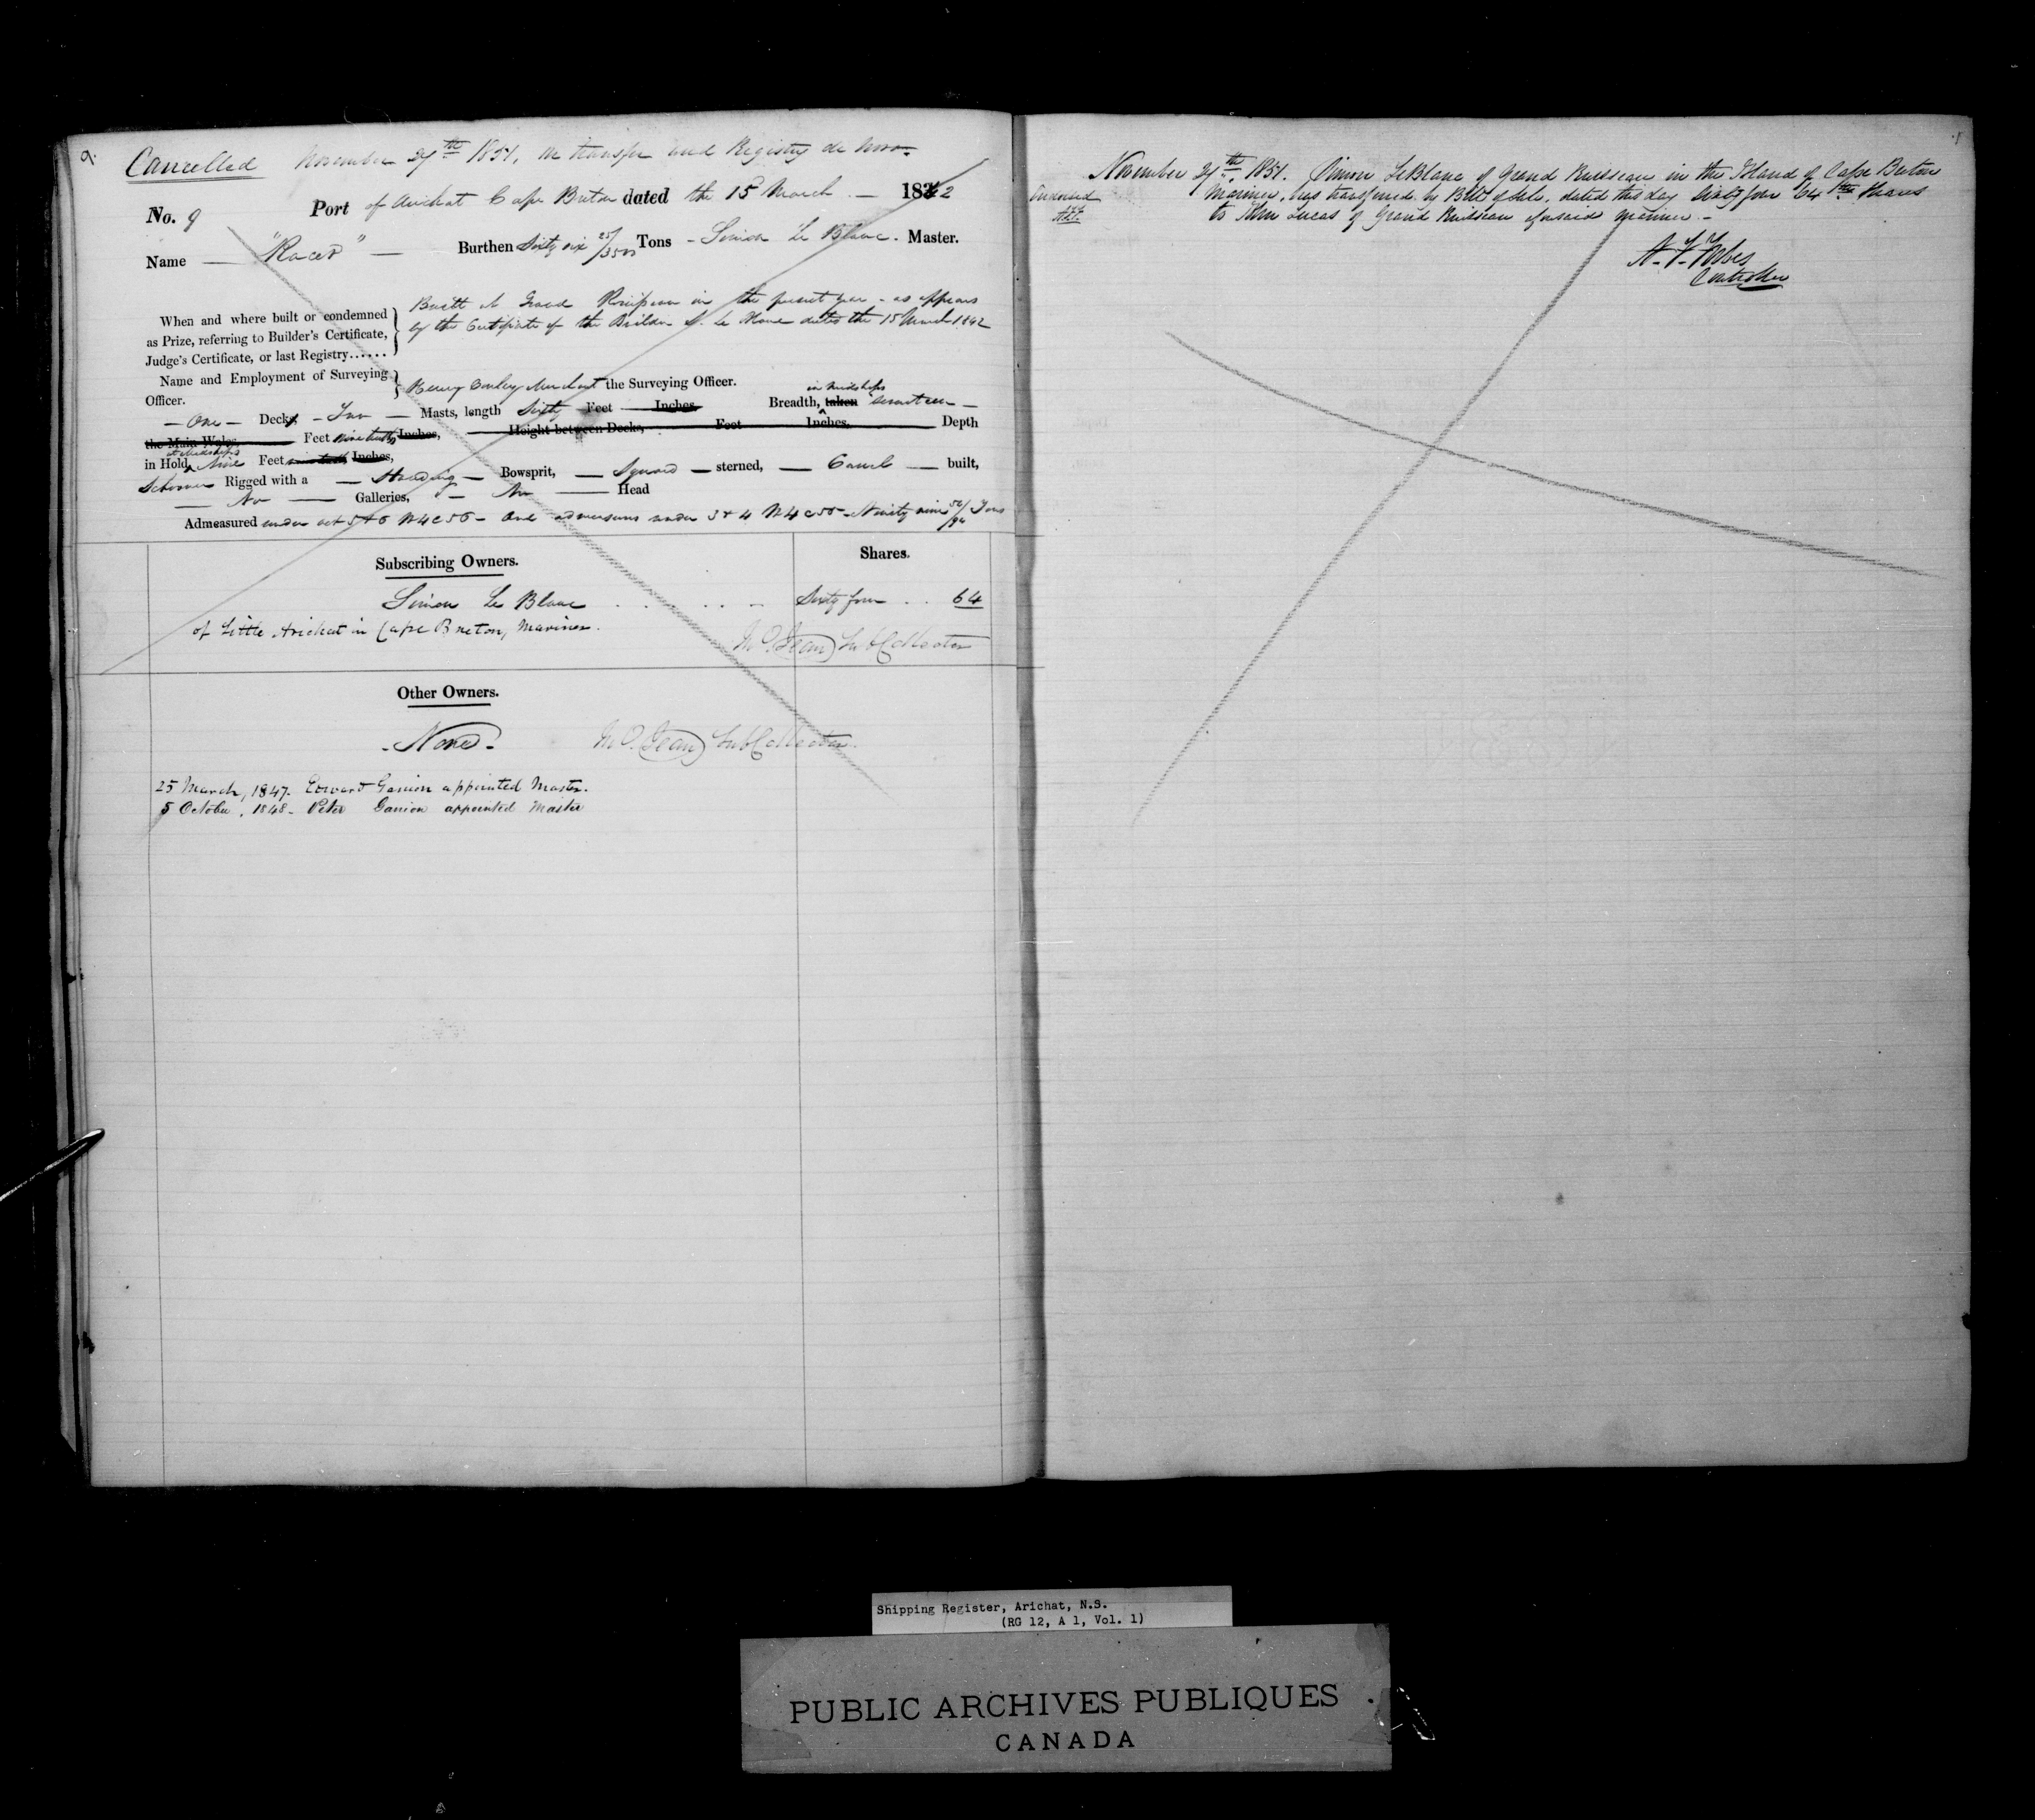 9.
Cancelled November 27th 1851. on transfer and Registry de novo-
No. 9 Port of Arichat Cape Breton dated the 15 March 1842
Name "Racer" Burthen Sixty six 25/3500 Tons - Simon Le Blanc. Master.
When and where built or condemned
as Prize, referring to Builder's Certificate,
Judge's Certificate, or last Registry......
Built at Grand in the present year - as appears
by the Certificate of the Builder S. Le Blanc dated the 15 March 1842
Name and Employment of Surveying
Officer.
Henry Merchant the Surveying Officer.
- One - Decks, - Two - Masts, length Sixty Feet Inches, Breadth, taken in Midships Seventeen -
the Main Wales, Feet nine tenths Inches, Height between Decks, Feet Inches, Depth
in Hold at Midships Nine Feet Inches,
Schooner Rigged with a - Standing - Bowsprit, - Square - sterned, - Carvel - built,
- No - Galleries, - No - Head
Admeasured under act 5+6 W4 c56 - and admeasures under 3+4 W4 c55 - Ninety nine 50/94 Tons
Subscribing Owners. Shares.
Simon Le Blanc . . . . . - Sixty four . . 64
of Little Arichat in Cape Breton, Mariner.
Jean Sub Collector
Other Owners.
- None - Jean Sub Collector.
25 March, 1847. Edward Ganion appointed Master.
5 October, 1848. Peter Ganion appointed Master
November 27th 1851. Simon LeBlanc of Grand Ruisseau in the Island of Cape Breton
Endorsed
Mariner, has transferred by Bill of Sale, dated this day Sixty four 64ths shares
to John Lucas of Grand Ruisseau aforesaid mariner. -
Controller
Shipping Register, Arichat, N.S.
(RG 12, A 1, Vol. 1)
PUBLIC ARCHIVES PUBLIQUES
CANADA